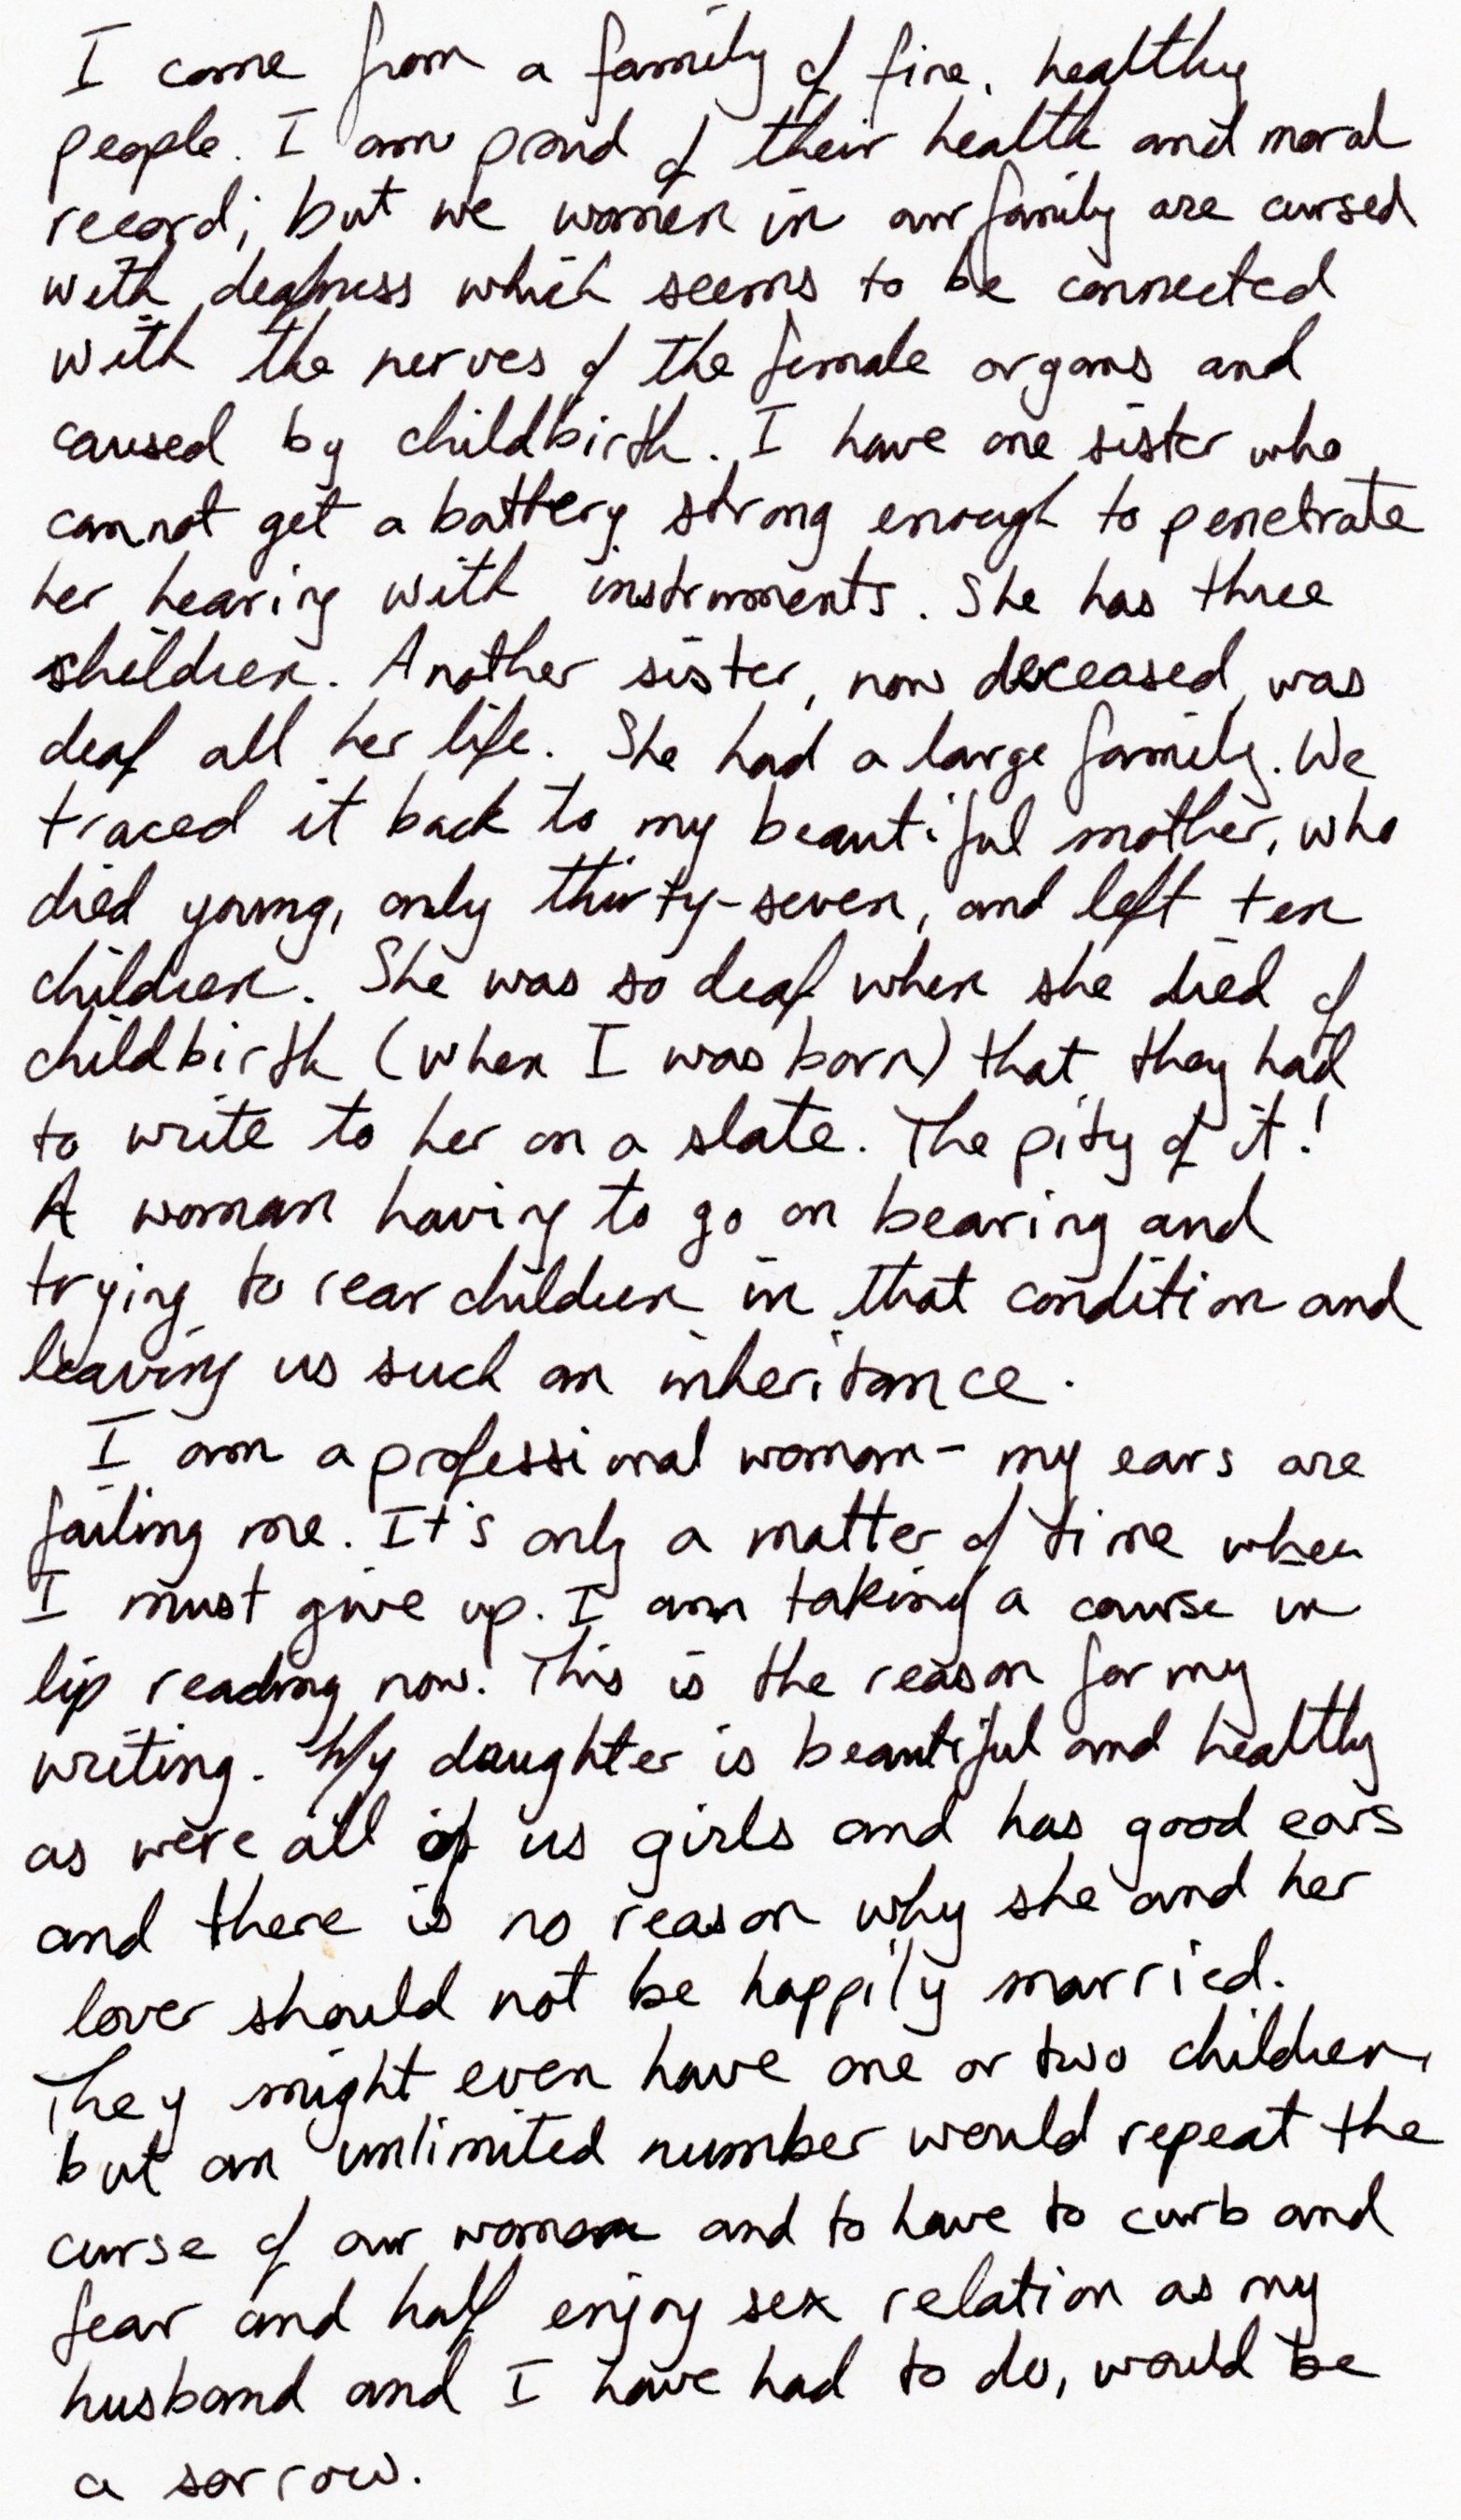 I come from a family of fine, healthy
people. I am proud of their health and moral
record; but we women in our family are cursed
with deafness which seems to be connected
with the nerves of the female organs and
caused by childbirth. I have one sister who
cannot get a battery strong enough to penetrate
her hearing with instruments. She has three
children. Another sister, now deceased, was
deaf all her life. She had a large family. We
traced it back to my beautiful mother, who
died young, only thirty-seven, and left ten
children. She was so deaf when she died of
childbirth (when I was born) that they had
to write to her on a slate. The pity of it!
A woman having to go on bearing and
trying to rear children in that condition and
leaving us such an inheritance.
I am a professional woman - my ears are
failing me. It's only a matter of time when
I must give up. I am taking a course in
lip reading now. This is the reason for my
writing. My daughter is beautiful and healthy
as were all of us girls and has good ears
and there is no reason why she and her
lover should not be happily married.
They might even have one or two children,
but an unlimited number would repeat the
curse of our women and to have to curb and
fear and half enjoy sex relation as my
husband and I have had to do, would be
a sorrow.